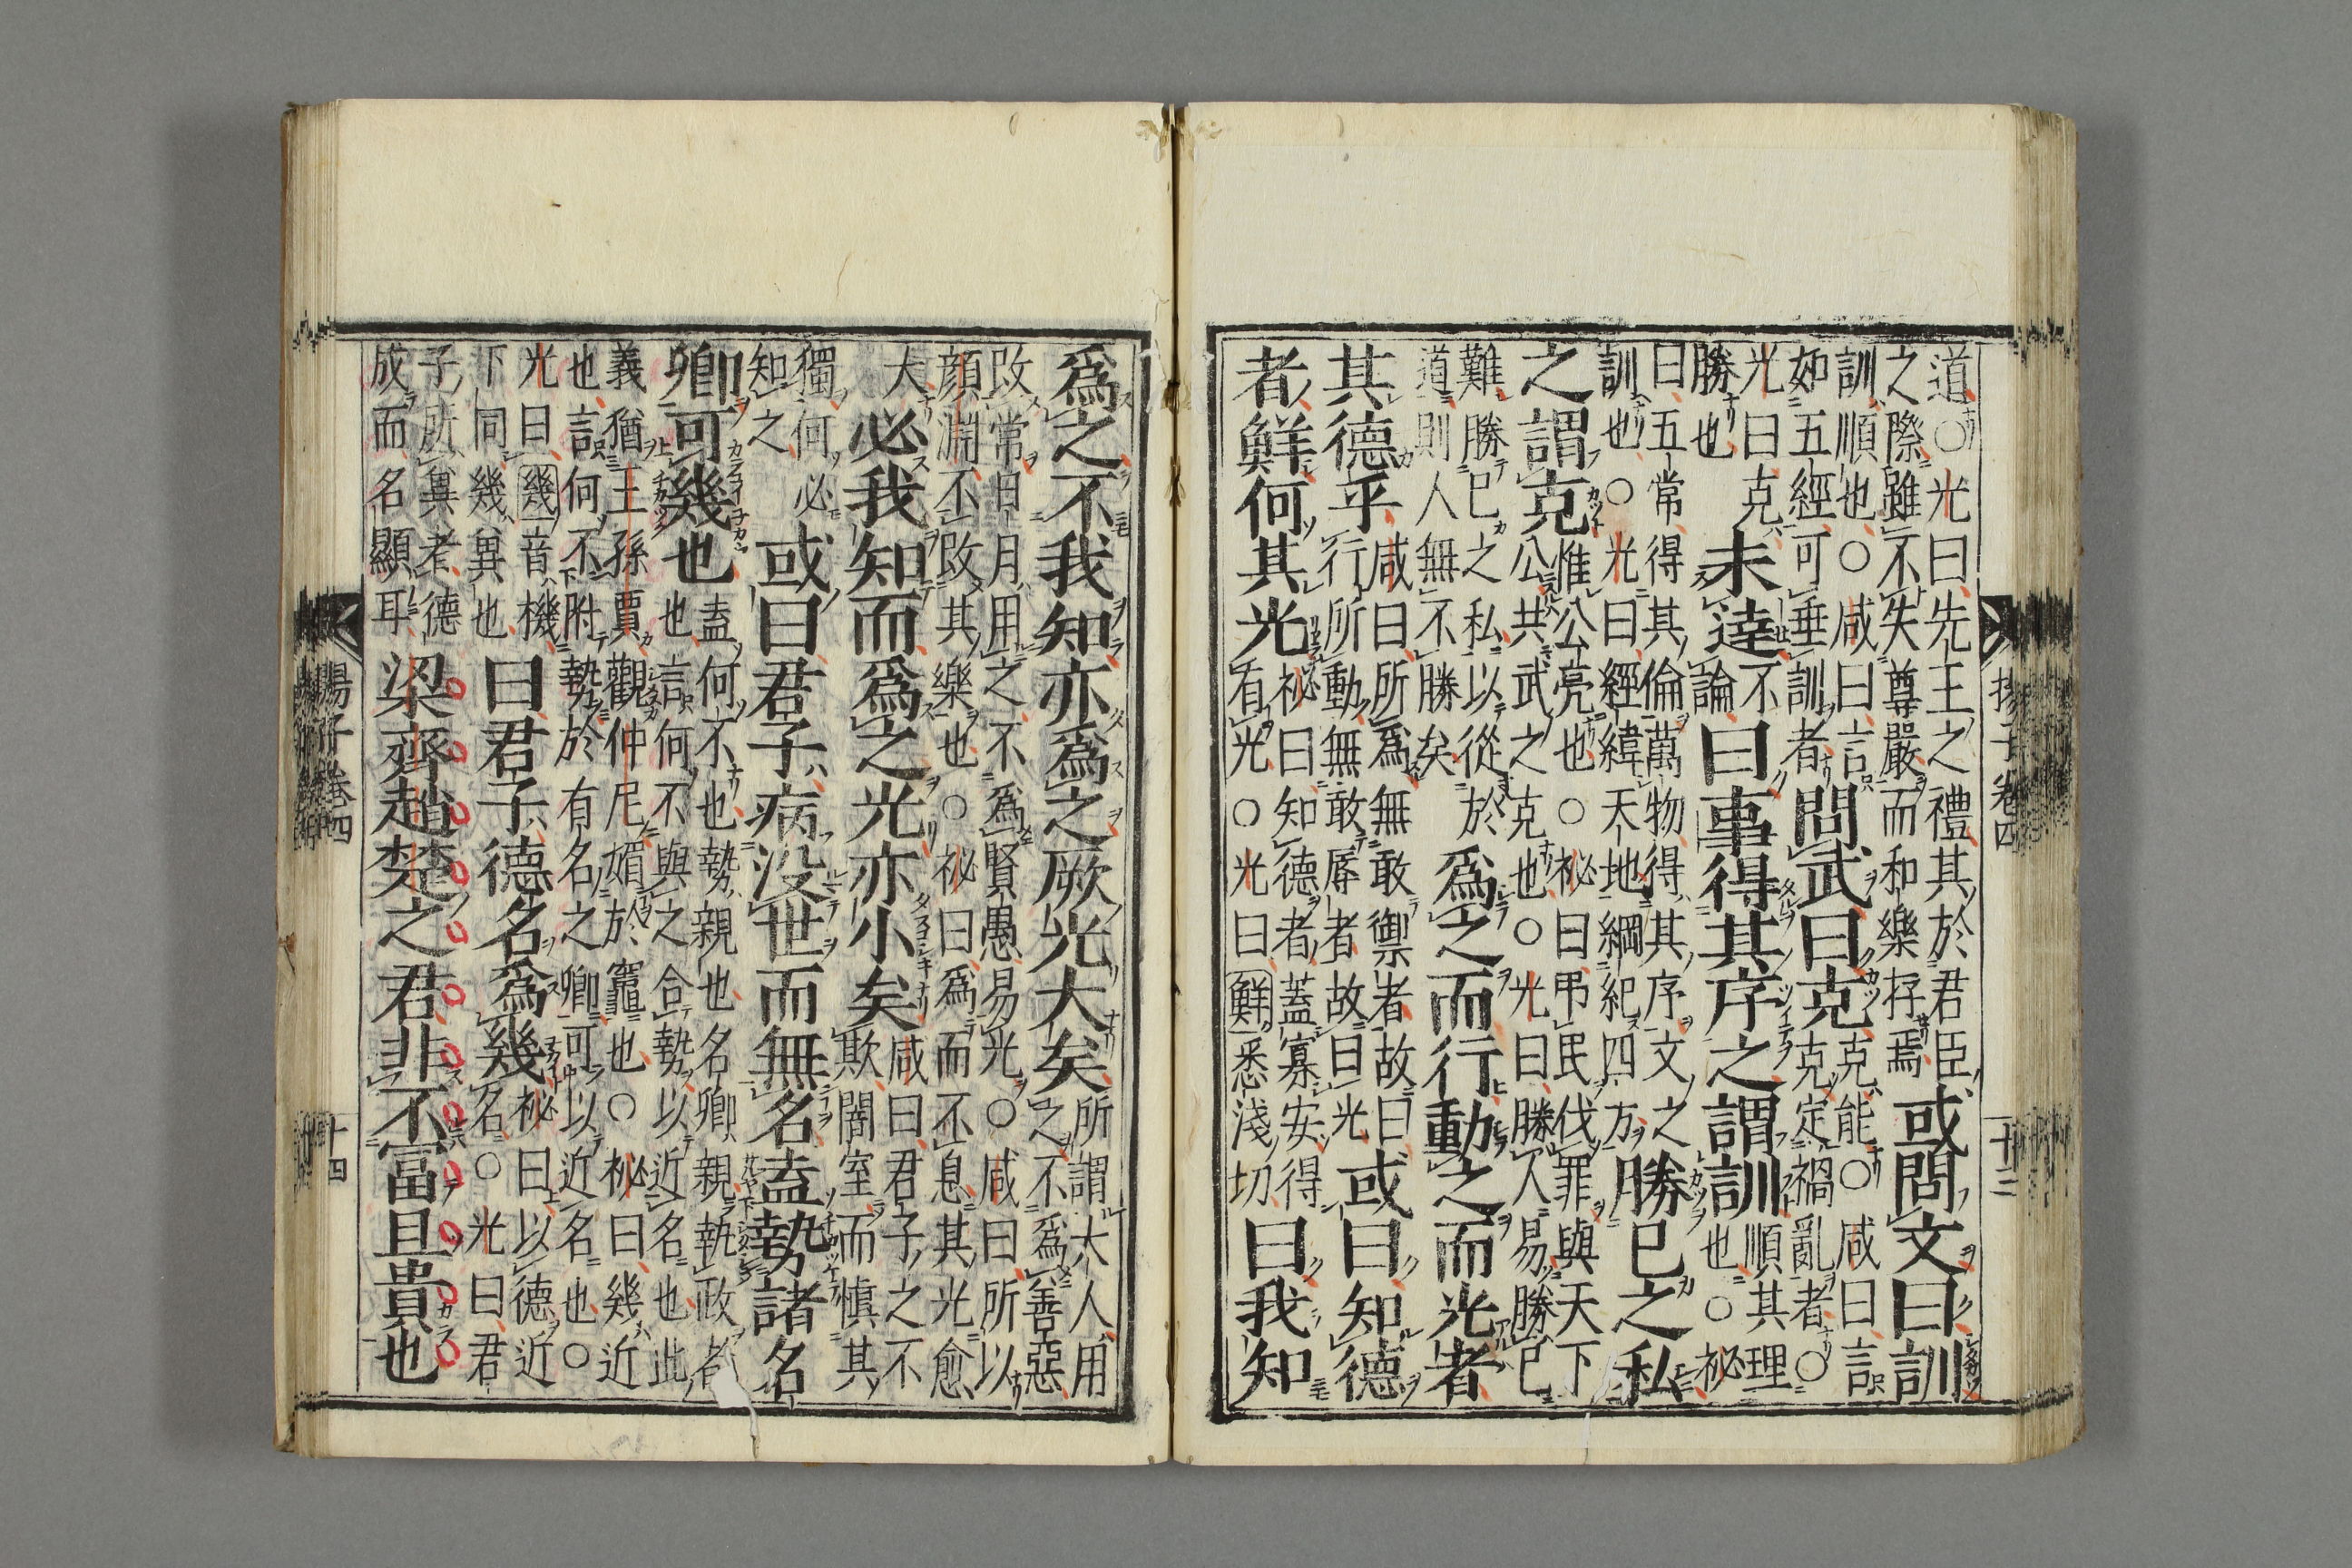 道○光曰先王之禮其於君臣
之際雖不失尊嚴而和樂存焉
或問文曰訓
訓順也○咸曰言
如五經可垂訓者
問武曰克
克能○咸曰言
克定禍亂者○
光曰克
勝也
未達
不
論
曰事得其序之謂訓
順其理
也○祕
曰五常得其倫萬物得其序文之
訓也○光曰經緯天地綱紀四方
勝己之私
之謂克
惟公亮也○祕曰弔民伐罪與天下
公共武之克也○光曰勝人易勝己
難勝己之私以從於
道則人無不勝矣
爲之而行動之而光者
其德乎
咸曰所爲無敢禦者故曰
行所動無敢辱者故曰光
或曰知德
者鮮何其光
祕曰知德者蓋寡安得
有光○光曰鮮悉淺切
曰我知
揚子卷四
十三
爲之不我知亦爲之厥光大矣
所謂大人用
之不爲善惡
改常日月用之不爲賢愚易光○咸曰所以
顔淵不改其樂也○祕曰爲而不息其光愈
大
必我知而爲之光亦小矣
咸曰君子之不
欺闇室而慎其
獨何必
知之
或曰君子病没世而無名盍勢諸名
卿可幾也
盍何不也勢親也名卿親執政者
也言何不與之合勢以近名也此
義猶王孫賈觀仲尼媚於竈也○祕曰幾近
也言何不附勢於有名之卿可以近名也○
光曰幾音機
下同幾異也
曰君子德名爲幾
祕曰以德近
名○光曰君
子所異者德
成而名顯耳
梁齊趙楚之君非不富且貴也
揚子卷四
十四